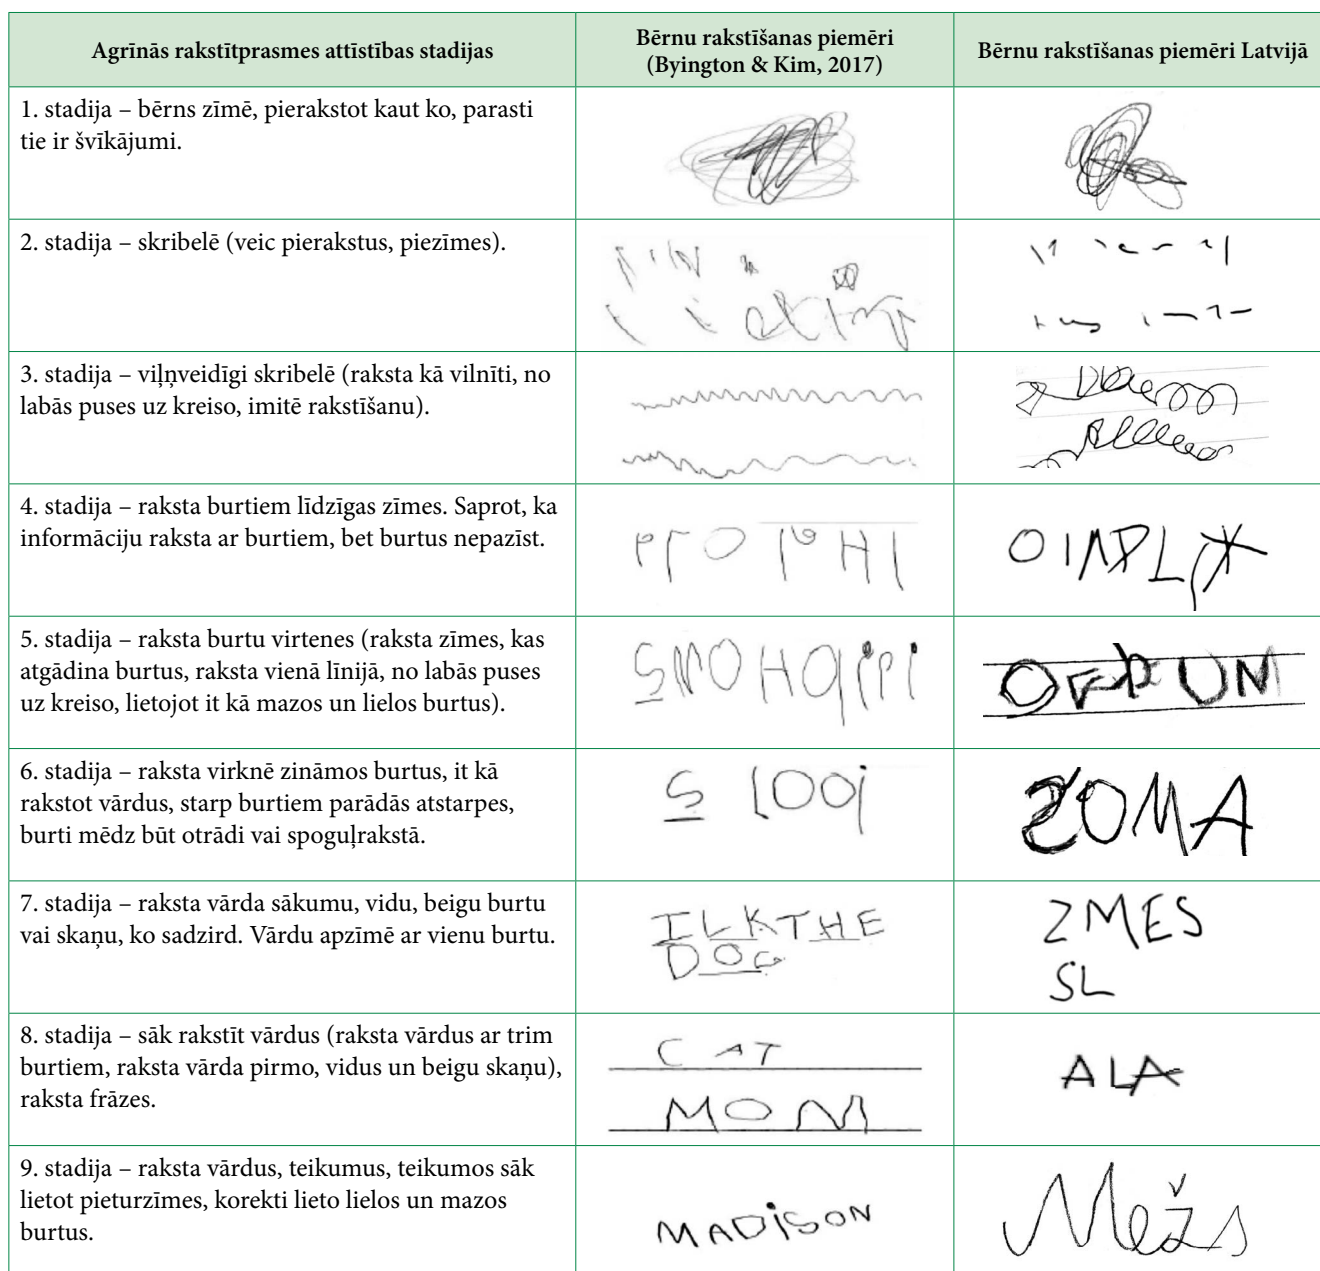 Agrīnās rakstītprasmes attīstības stadijas
Bērnu rakstīšanas piemēri
(Byington & Kim, 2017)
Bērnu rakstīšanas piemēri Latvijā
1. stadija – bērns zīmē, pierakstot kaut ko, parasti
tie ir švīkājumi.
2. stadija – skribelē (veic pierakstus, piezīmes).
3. stadija – viļņveidīgi skribelē (raksta kā vilnīti, no
labās puses uz kreiso, imitē rakstīšanu).
4. stadija – raksta burtiem līdzīgas zīmes. Saprot, ka
informāciju raksta ar burtiem, bet burtus nepazīst.
5. stadija – raksta burtu virtenes (raksta zīmes, kas
atgādina burtus, raksta vienā līnijā, no labās puses
uz kreiso, lietojot it kā mazos un lielos burtus).
6. stadija – raksta virknē zināmos burtus, it kā
rakstot vārdus, starp burtiem parādās atstarpes,
burti mēdz būt otrādi vai spoguļrakstā.
SOMA
7. stadija – raksta vārda sākumu, vidu, beigu burtu
vai skaņu, ko sadzird. Vārdu apzīmē ar vienu burtu.
ILKTHE
DOG
ZMES
SL
8. stadija – sāk rakstīt vārdus (raksta vārdus ar trim
burtiem, raksta vārda pirmo, vidus un beigu skaņu),
raksta frāzes.
CAT
MOM
ALA
9. stadija – raksta vārdus, teikumus, teikumos sāk
lietot pieturzīmes, korekti lieto lielos un mazos
burtus.
MADiSON
Mežs